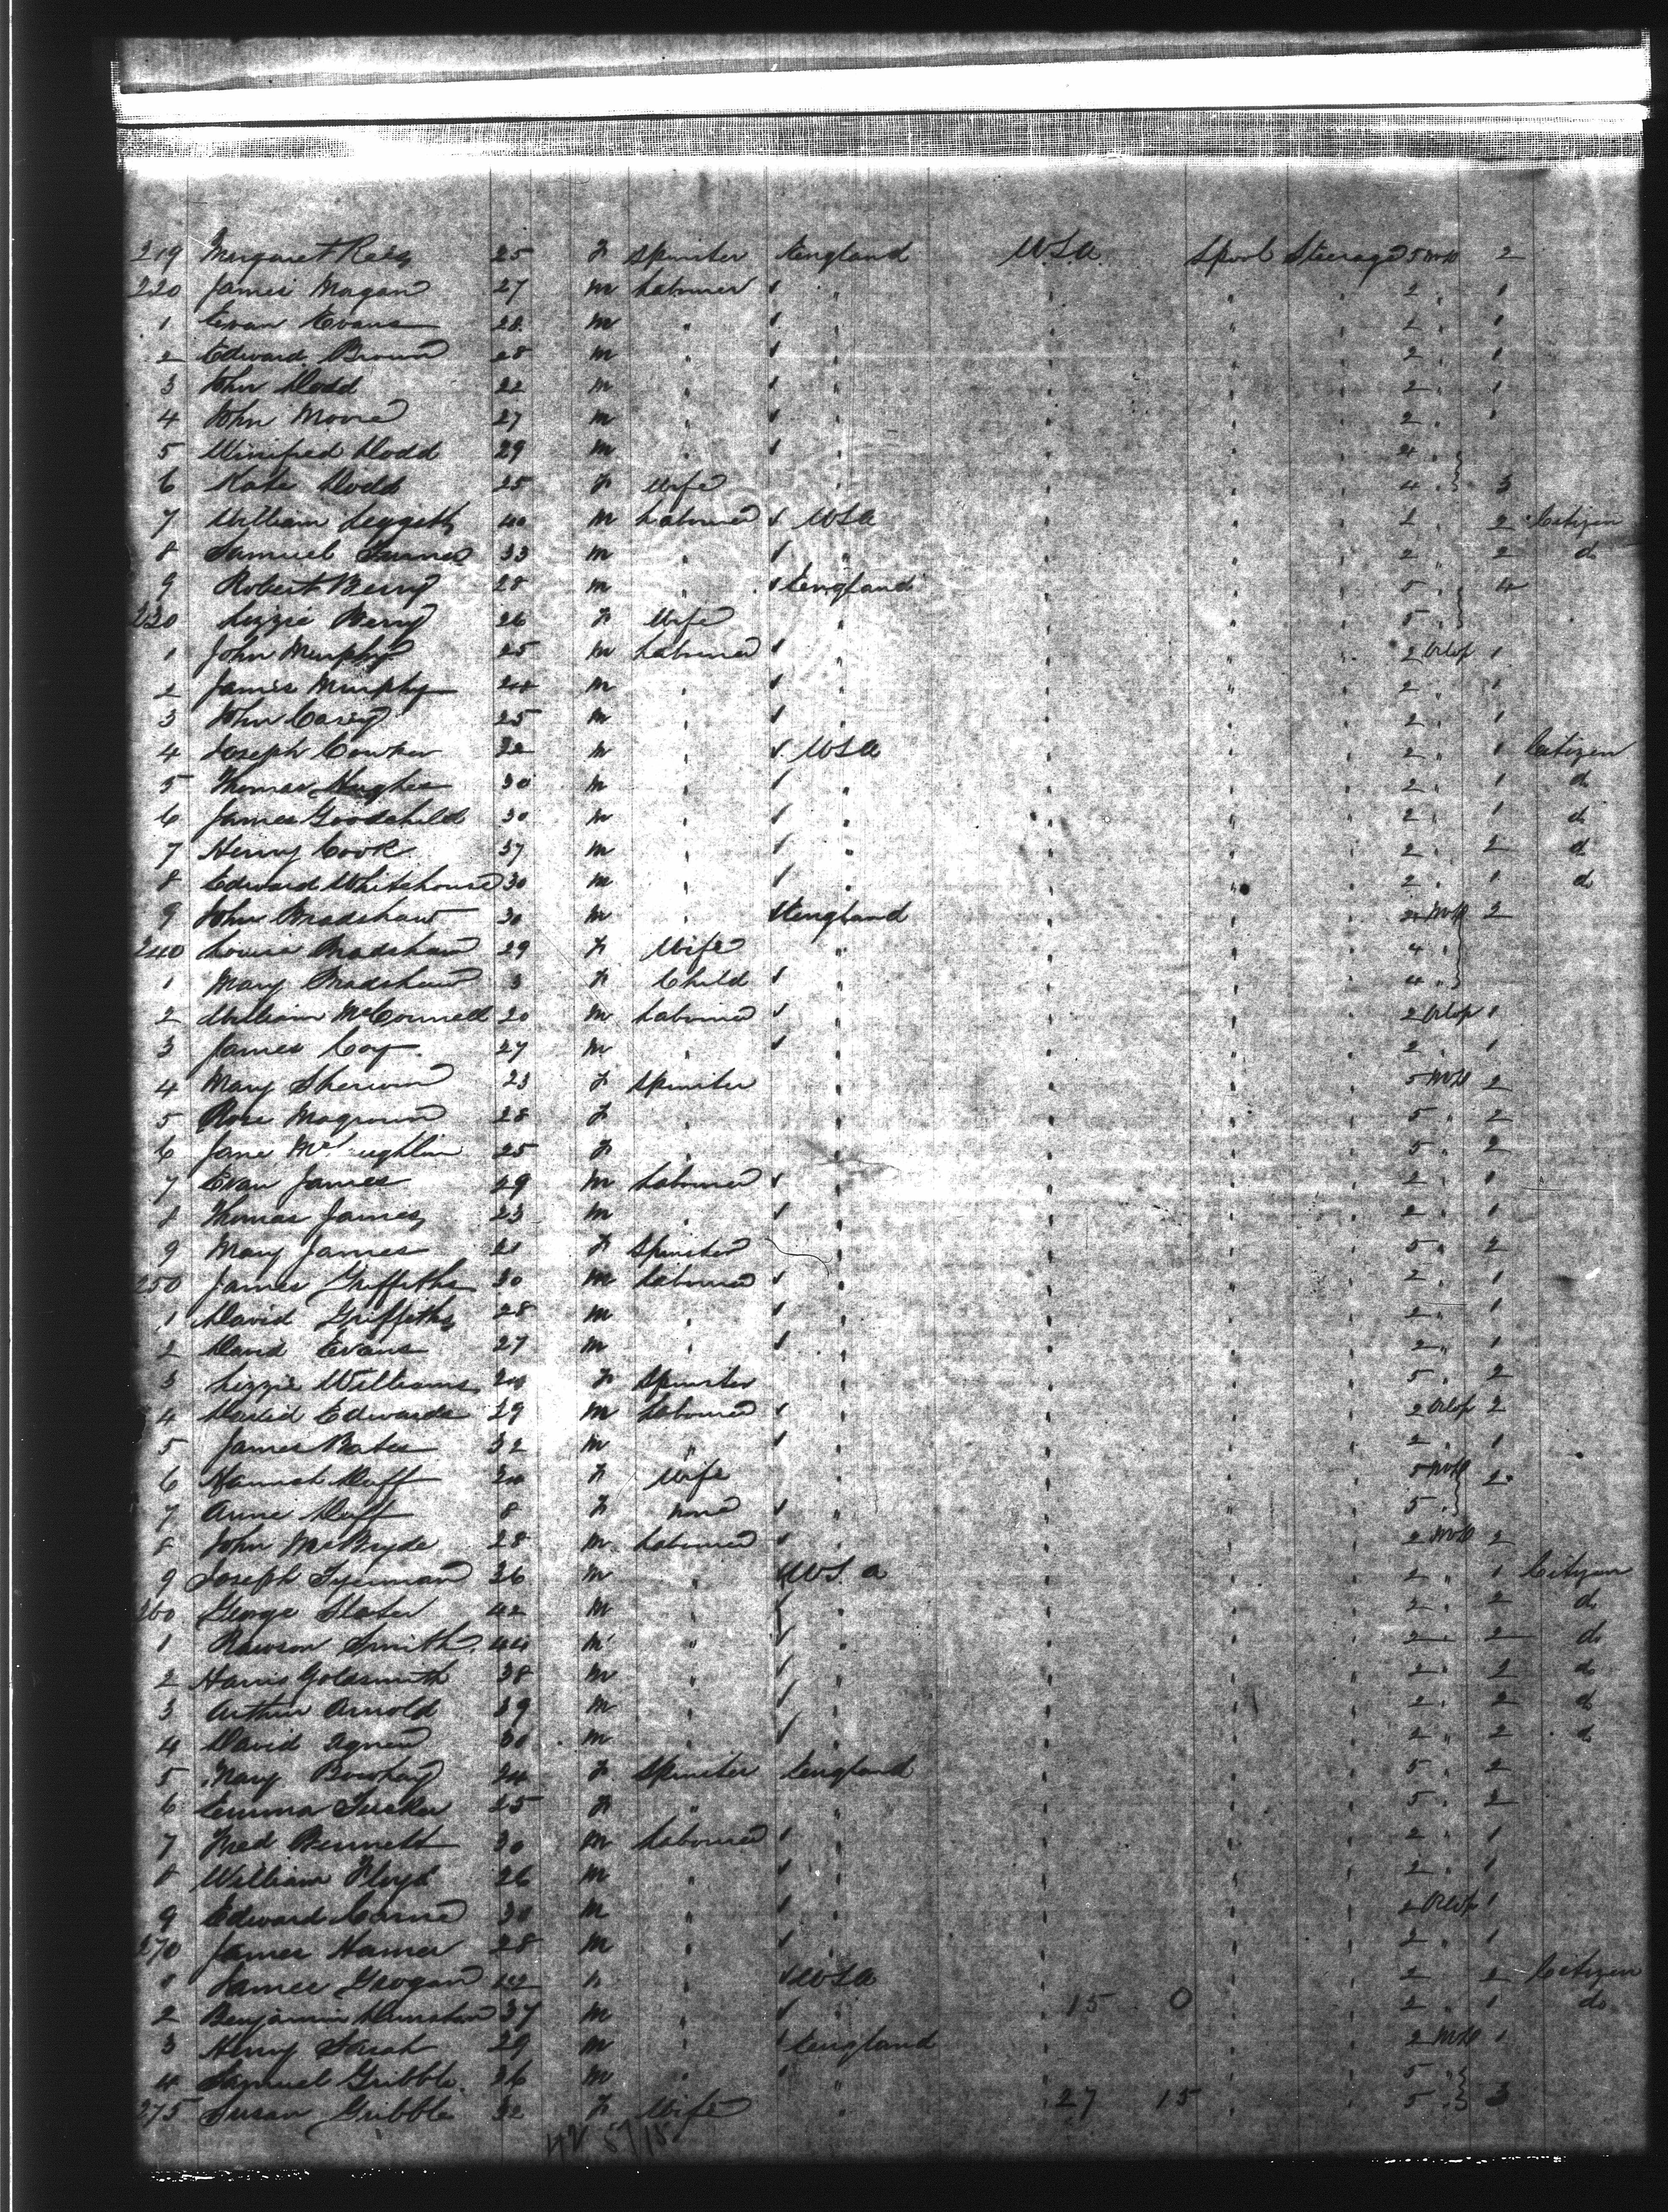 219 Margaret Rees 25 F Spinster England U.S.A. Lpool Steerage 5 2
220 James Magan 27 M Labourer " 2 " 1
1 Evan Evans 28 M " " 2 " 1
2 Edward Brown 28 M " " 2 " 1
3 John Dodd 22 M " " 2 " 1
4 John Moore 27 M " " 2 " 1
5 Winifred Dodd 29 M " " 4 "
6 Kate Dodd 25 F Wife " 4 " 3
7 William Leggett 40 M Labourer USA 2 " 2 Citizen
8 Samuel Turner 33 M " " 2 " 2 do
9 Robert Berry 28 M " England 5 " 4
230 Lizzie Berry 26 F Wife " 5 "
1 John Murphy 25 M Labourer " 2 Orlop 1
2 James Murphy 24 M " " 2 " 1
3 John Casey 25 M " " 2 " 1
4 Joseph 32 M " USA 2 " 1 Citizen
5 Thomas Hughes 30 M " " 2 " 1 do
6 James Goodchild 30 M " " 2 " 1 do
7 Henry Cook 37 M " " 2 " 2 do
8 Edward Whitehouse 30 M " " 2 " 1 do
9 John Bradshaw 30 M " England 2
240 Louisa Bradshaw 29 F Wife " 4 "
1 Mary Bradshaw 3 F Child " 4 "
2 William McConnell 20 M Labourer " 2 Orlop 1
3 James Coy 27 M " " 2 " 1
4 Mary Sherwin 23 F Spinster " 5 2
5 Rose 28 F " " 5 " 2
6 Jane 25 F " " 5 " 2
7 Evan James 29 M Labourer " 2 " 1
8 Thomas James 23 M " " 2 " 1
9 Mary James 21 F Spinster " 5 " 2
250 James Griffiths 30 M Labourer " 2 " 1
1 David Griffiths 28 M " " 2 " 1
2 David Evans 27 M " " 2 " 1
3 Lizzie Williams 24 F Spinster " 5 " 2
4 David Edwards 29 M Labourer " 2 Orlop 2
5 James Bates 32 M " " 2 " 1
6 Hannah Duff 24 F Wife " 5 2
7 Annie Duff 8 F none " 5 "
8 John McBryde 28 M Labourer " 2 2
9 Joseph 36 M " U.S.A 2 " 1 Citizen
260 George Slater 42 M " " 2 " 2 do
1 Rawson Smith 44 M " " 2 " 2 do
2 Harris Goldsmith 38 M " " 2 " 2 do
3 Arthur Arnold 39 M " " 2 " 2 do
4 David Agnew 30 M " " 2 " 2 do
5 Mary 24 F Spinster England 5 " 2
6 Emma Tucker 25 F " " 5 " 2
7 Fred Bennett 30 M Labourer " 2 " 1
8 William Floyd 26 M " " 2 " 1
9 Edward 30 M " " 2 Orlop 1
270 James Hamer 28 M " " 2 " 1
1 James Grogan 42 M " USA 2 " 2 Citizen
2 Benjamin 37 M " " 15 0 2 " 1 do
3 Henry Sarah 29 M " England 2 1
4 Samuel Gribble 26 M " " 5 "
275 Susan Gribble 32 F Wife " 27 15 5 " 3